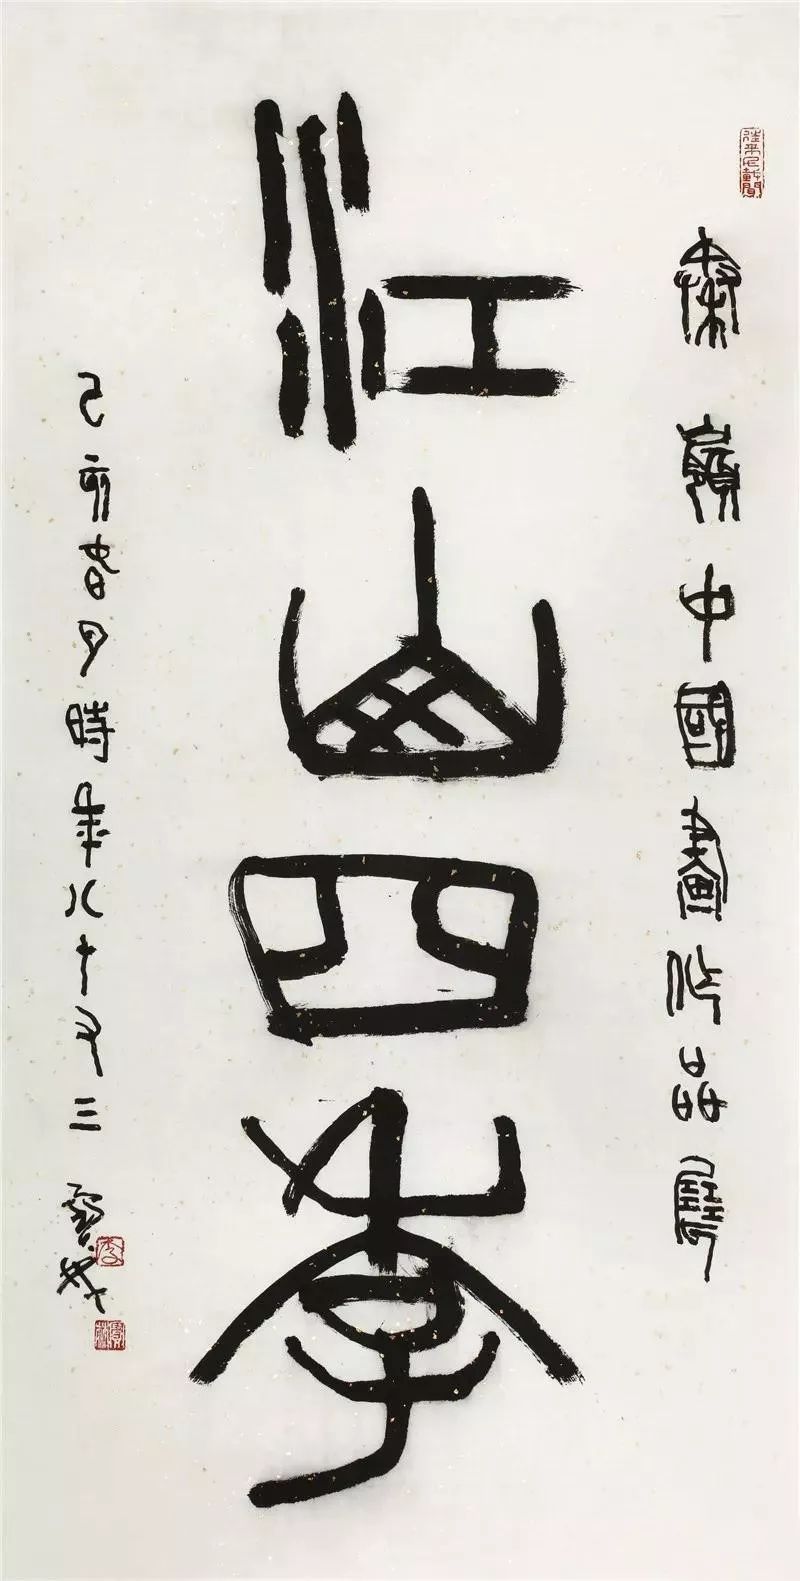 秦嶺中國畫作品展
江山四季
己亥春月時年八十又三